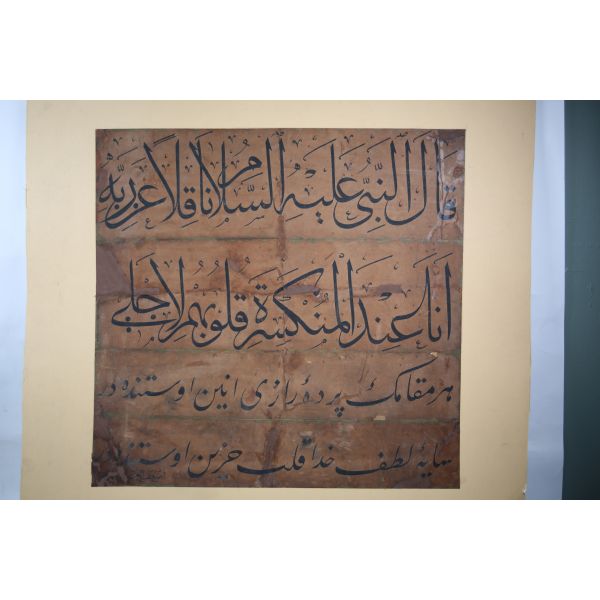 قَالَ النَّبِيُّ عَلَيْهِ السَّلَامُ نَاقِلًا عَنْ رَبِّهِ
أَنَا عِنْدَ الْمُنْكَسِرَةِ قُلُوبُهُمْ لِأَجْلِي
هر مقامك پردهٔ رازى انين اوستنده در
سايهٔ لطف خدا قلب حزين اوستنده در